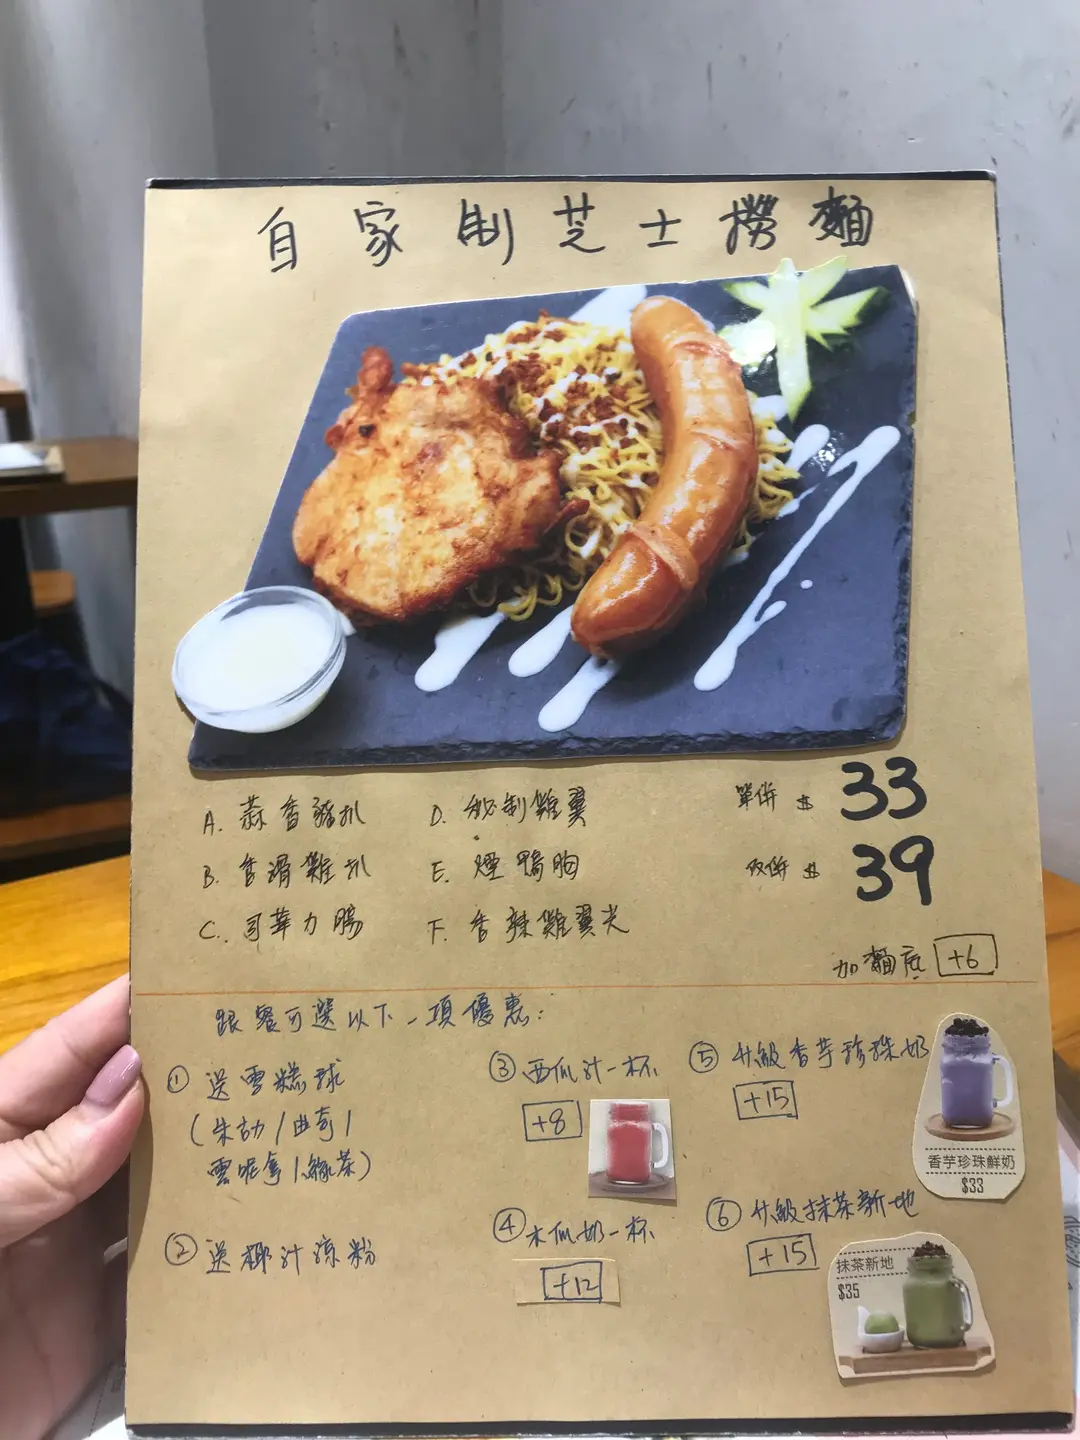 自家制芝士撈麵
A. 蒜香豬扒
B. 香滑雞扒
C. 司華力腸
D. 秘制雞翼
E. 煙鴨胸
F. 香辣雞翼尖
單併 $ 33
双併 $ 39
加麵底 +6
跟餐可選以下一項優惠:
① 送雪糕球
(朱古力/曲奇/
雲呢拿/綠茶)
② 送椰汁涼粉
③ 西瓜汁一杯
+8
④ 木瓜奶一杯
+12
⑤ 升級香芋珍珠奶
+15
香芋珍珠鮮奶
$33
⑥ 升級抹茶新地
+15
抹茶新地
$35